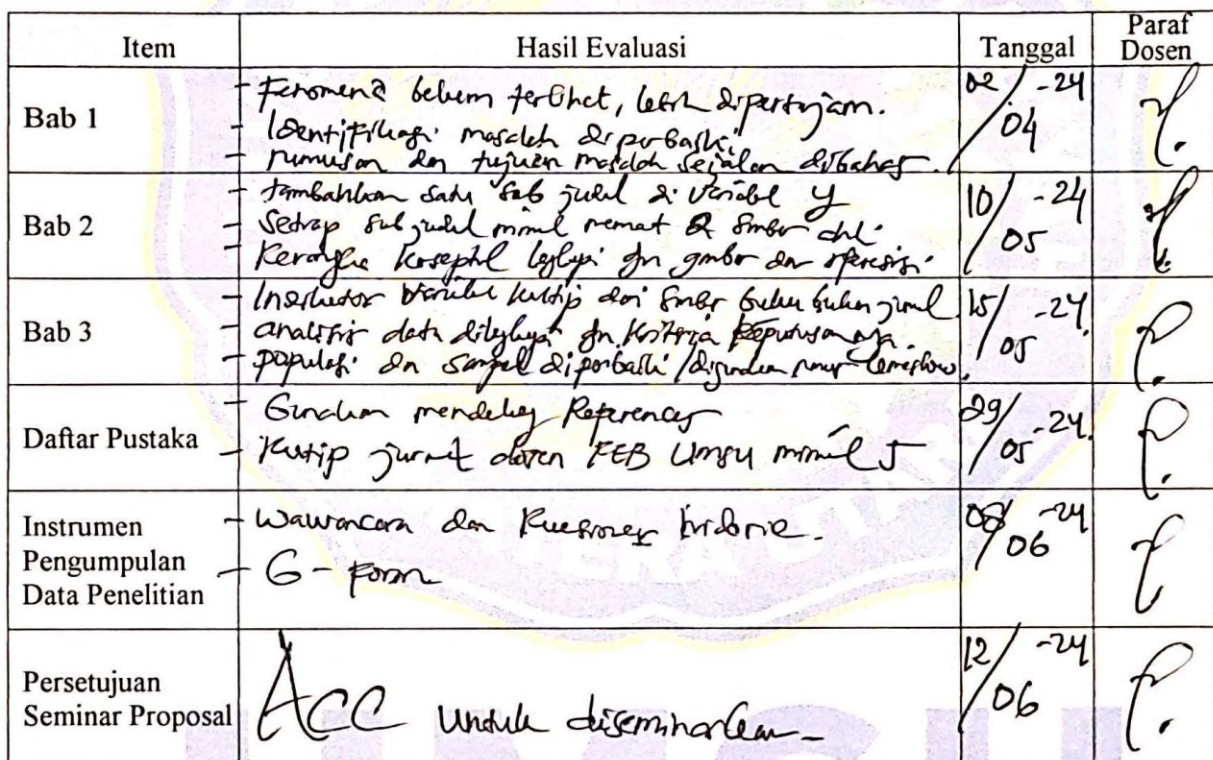 Item Hasil Evaluasi Tanggal Paraf Dosen
Bab 1
- Fenomena belum terlihat, lebih dipertajam.
- Identifikasi masalah diperbaiki
- rumusan dan tujuan masalah sejalan dibahas.
02/04-24
Bab 2
- tambahkan satu sub judul di variabel Y
- Setiap sub judul minimal memuat 2 sumber
- Kerangka konseptual lengkapi dgn gambar dan
10/05-24
Bab 3
- Indikator variabel kutip dari sumber buku bukan jurnal
- analisis data dilengkapi dgn kriteria keputusannya.
- populasi dan sampel diperbaiki / rumus lemeshow.
15/05-24
Daftar Pustaka
- Gunakan mendeley References
- Kutip jurnal dosen FEB UMSU minimal 5
29/05-24
Instrumen
Pengumpulan
Data Penelitian
- Wawancara dan Kuesioner
- G-Form
08/06-24
Persetujuan
Seminar Proposal
ACC untuk diseminarkan
12/06-24